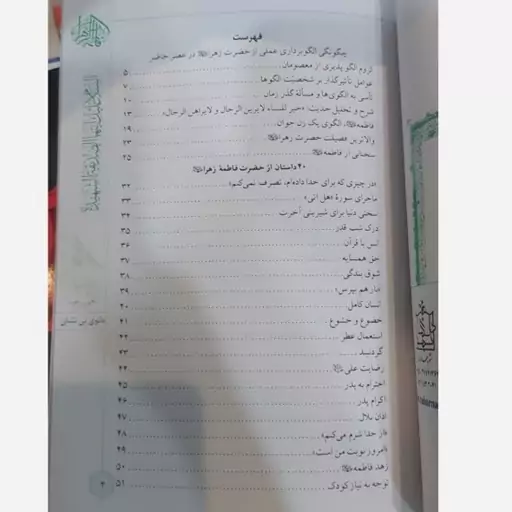 فهرست
چگونگی الگوبرداری عملی از حضرت زهرا در عصر حاضر
لزوم الگو پذیری از معصومان ۵
عوامل تأثیرگذار بر شخصیّت الگوها ۷
تأسی به الگوی‌ها و مسألهٔ گذر زمان ۱۰
شرح و تحلیل حدیث: «خیر للنساء لایرین الرجال و لایراهن الرجال» ۱۳
فاطمه، الگوی یک زن جوان ۱۹
والاترین فضیلت حضرت زهرا ۲۳
سخنانی از فاطمه ۲۵
۴۰ داستان از حضرت فاطمهٔ زهرا
«در چیزی که برای خدا داده‌ام، تصرف نمی‌کنم» ۳۲
ماجرای سورهٔ «هل اتی» ۳۳
سختی دنیا برای شیرینی آخرت ۳۴
درک شب قدر ۳۵
انس با قرآن ۳۶
حق همسایه ۳۷
شوق بندگی ۳۸
«باز هم بپرس» ۳۹
انسان کامل ۴۰
خضوع و خشوع ۴۱
استعمال عطر ۴۲
گردنبند ۴۳
رضایت علی ۴۴
احترام به پدر ۴۵
اکرام پدر ۴۶
اذان بلال ۴۷
«از خدا شرم می‌کنم» ۴۸
«امروز نوبت من است» ۴۹
زهد فاطمه ۵۰
توجه به نیاز کودک ۵۱
بانوی بی نشان
۳